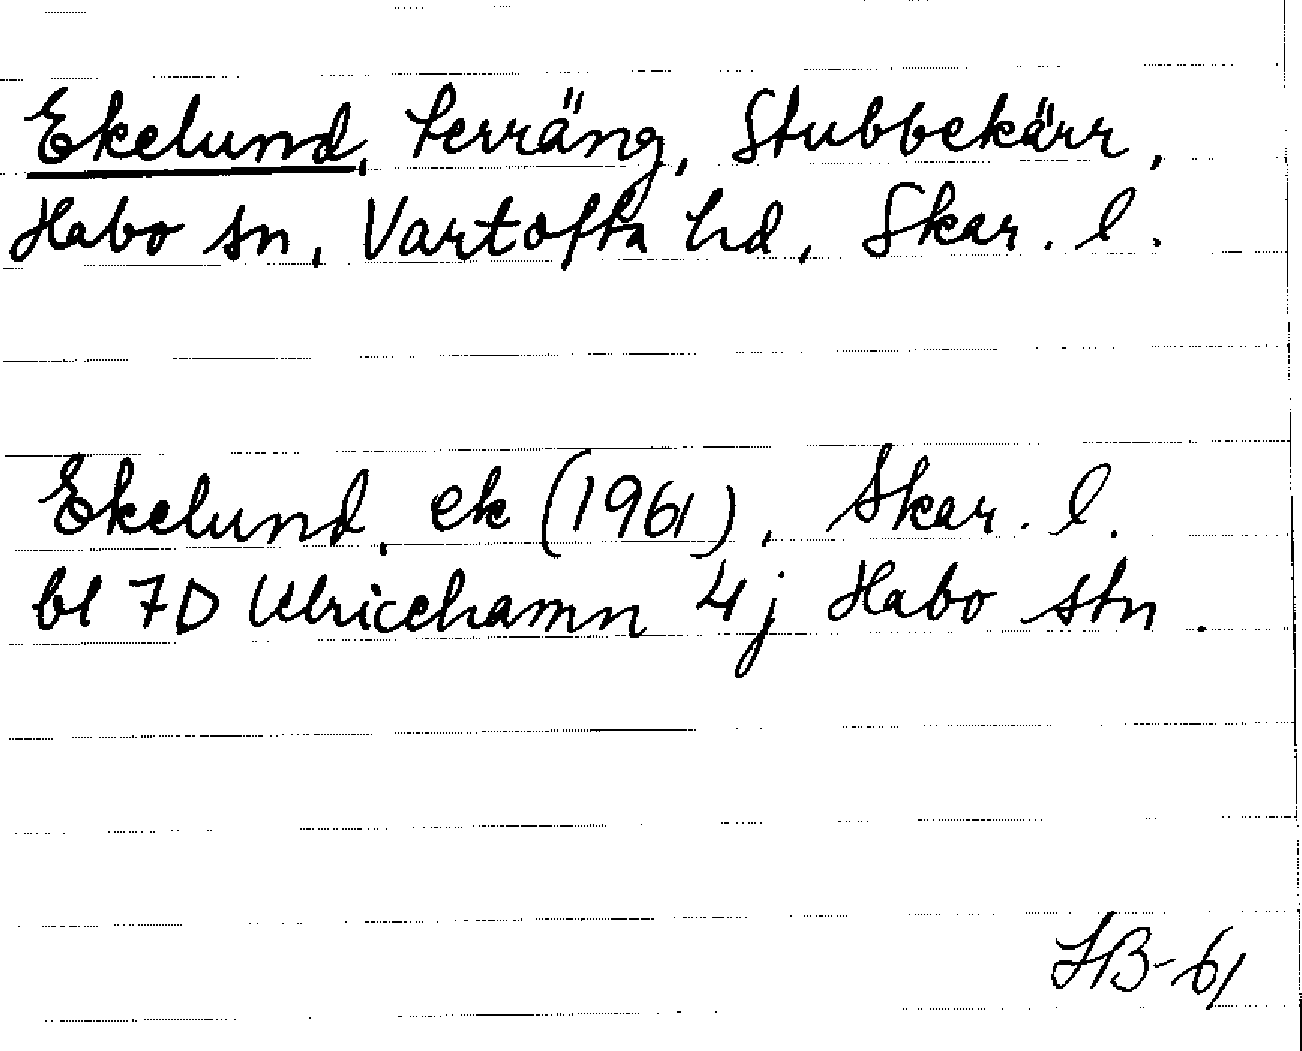 Ekelund, Terräng, Stubbekärr,
Habo sn, Vartofta hd, Skar. l.
Ekelund, ek (1961), Skar. l.
bl 7D Ulricehamn 4j Habo stn.
HB-61